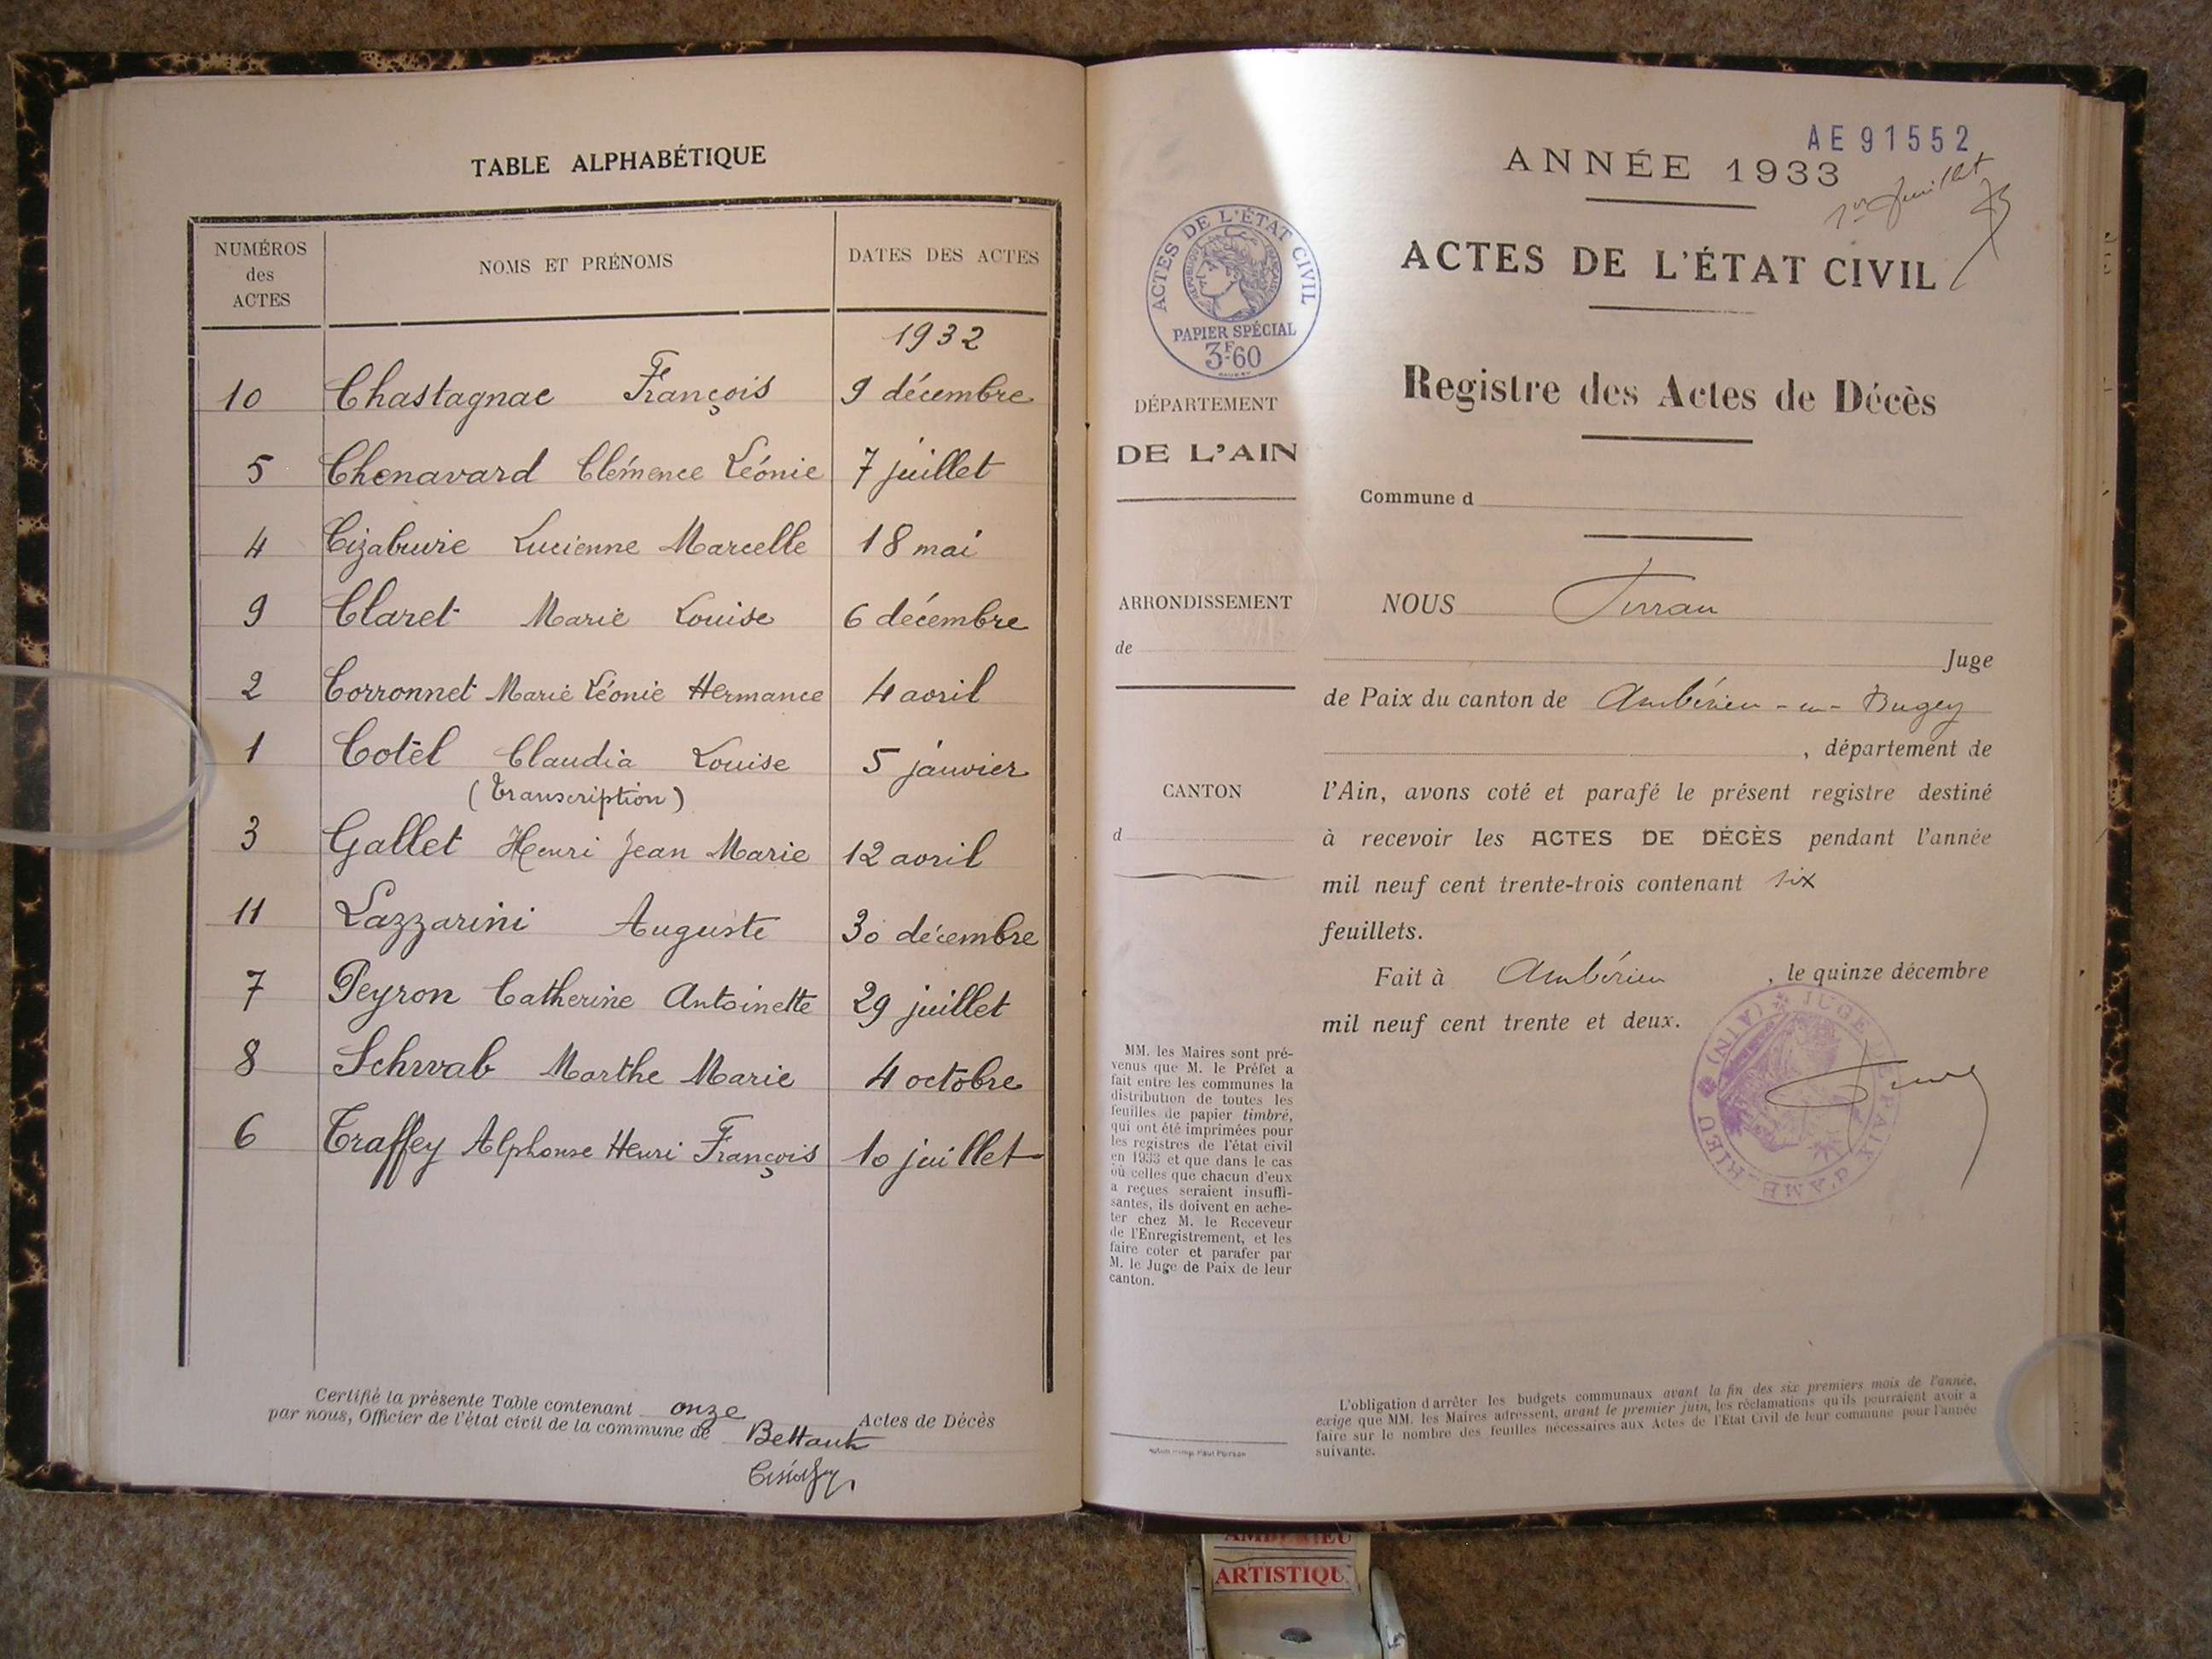 TABLE ALPHABÉTIQUE
NUMÉROS des ACTES NOMS ET PRÉNOMS DATES DES ACTES
1932
10 Chastagnac François 9 décembre
5 Chenavard Clémence Léonie 7 juillet
4 Cizabuire Lucienne Marcelle 18 mai
9 Claret Marie Louise 6 décembre
2 Corronnet Marie Léonie Hermance 4 avril
1 Cotel Claudia Louise 5 janvier
(Transcription)
3 Gallet Henri Jean Marie 12 avril
11 Lazzarini Auguste 30 décembre
7 Peyron Catherine Antoinette 29 juillet
8 Schwab Marthe Marie 4 octobre
6 Traffey Alphonse Henri François 10 juillet
Certifié la présente Table contenant onze Actes de Décès
par nous, Officier de l'état civil de la commune de Bettant
AE 91552
ANNÉE 1933
1er Juillet
ACTES DE L'ÉTAT CIVIL
Registre des Actes de Décès
Commune d
ACTES DE L'ÉTAT CIVIL
RÉPUBLIQUE FRANÇAISE
PAPIER SPÉCIAL
3F60
DÉPARTEMENT
DE L'AIN
ARRONDISSEMENT
de
CANTON
d
MM. les Maires sont pré-
venus que M. le Préfet a
fait entre les communes la
distribution de toutes les
feuilles de papier timbré,
qui ont été imprimées pour
les registres de l'état civil
en 1933 et que dans le cas
où celles que chacun d'eux
a reçues seraient insuffi-
santes, ils doivent en ache-
ter chez M. le Receveur
de l'Enregistrement, et les
faire coter et parafer par
M. le Juge de Paix de leur
canton.
NOUS
Juge
de Paix du canton de Ambérieu-en-Bugey
, département de
l'Ain, avons coté et parafé le présent registre destiné
à recevoir les ACTES DE DÉCÈS pendant l'année
mil neuf cent trente-trois contenant six
feuillets.
Fait à Ambérieu , le quinze décembre
mil neuf cent trente et deux.
JUGE DE PAIX D'AMBÉRIEU (AIN)
L'obligation d'arrêter les budgets communaux avant la fin des six premiers mois de l'année,
exige que MM. les Maires adressent, avant le premier juin, les réclamations qu'ils pourraient avoir à
faire sur le nombre des feuilles nécessaires aux Actes de l'Etat Civil de leur commune pour l'année
suivante.
AMBERIEU
ARTISTIQU